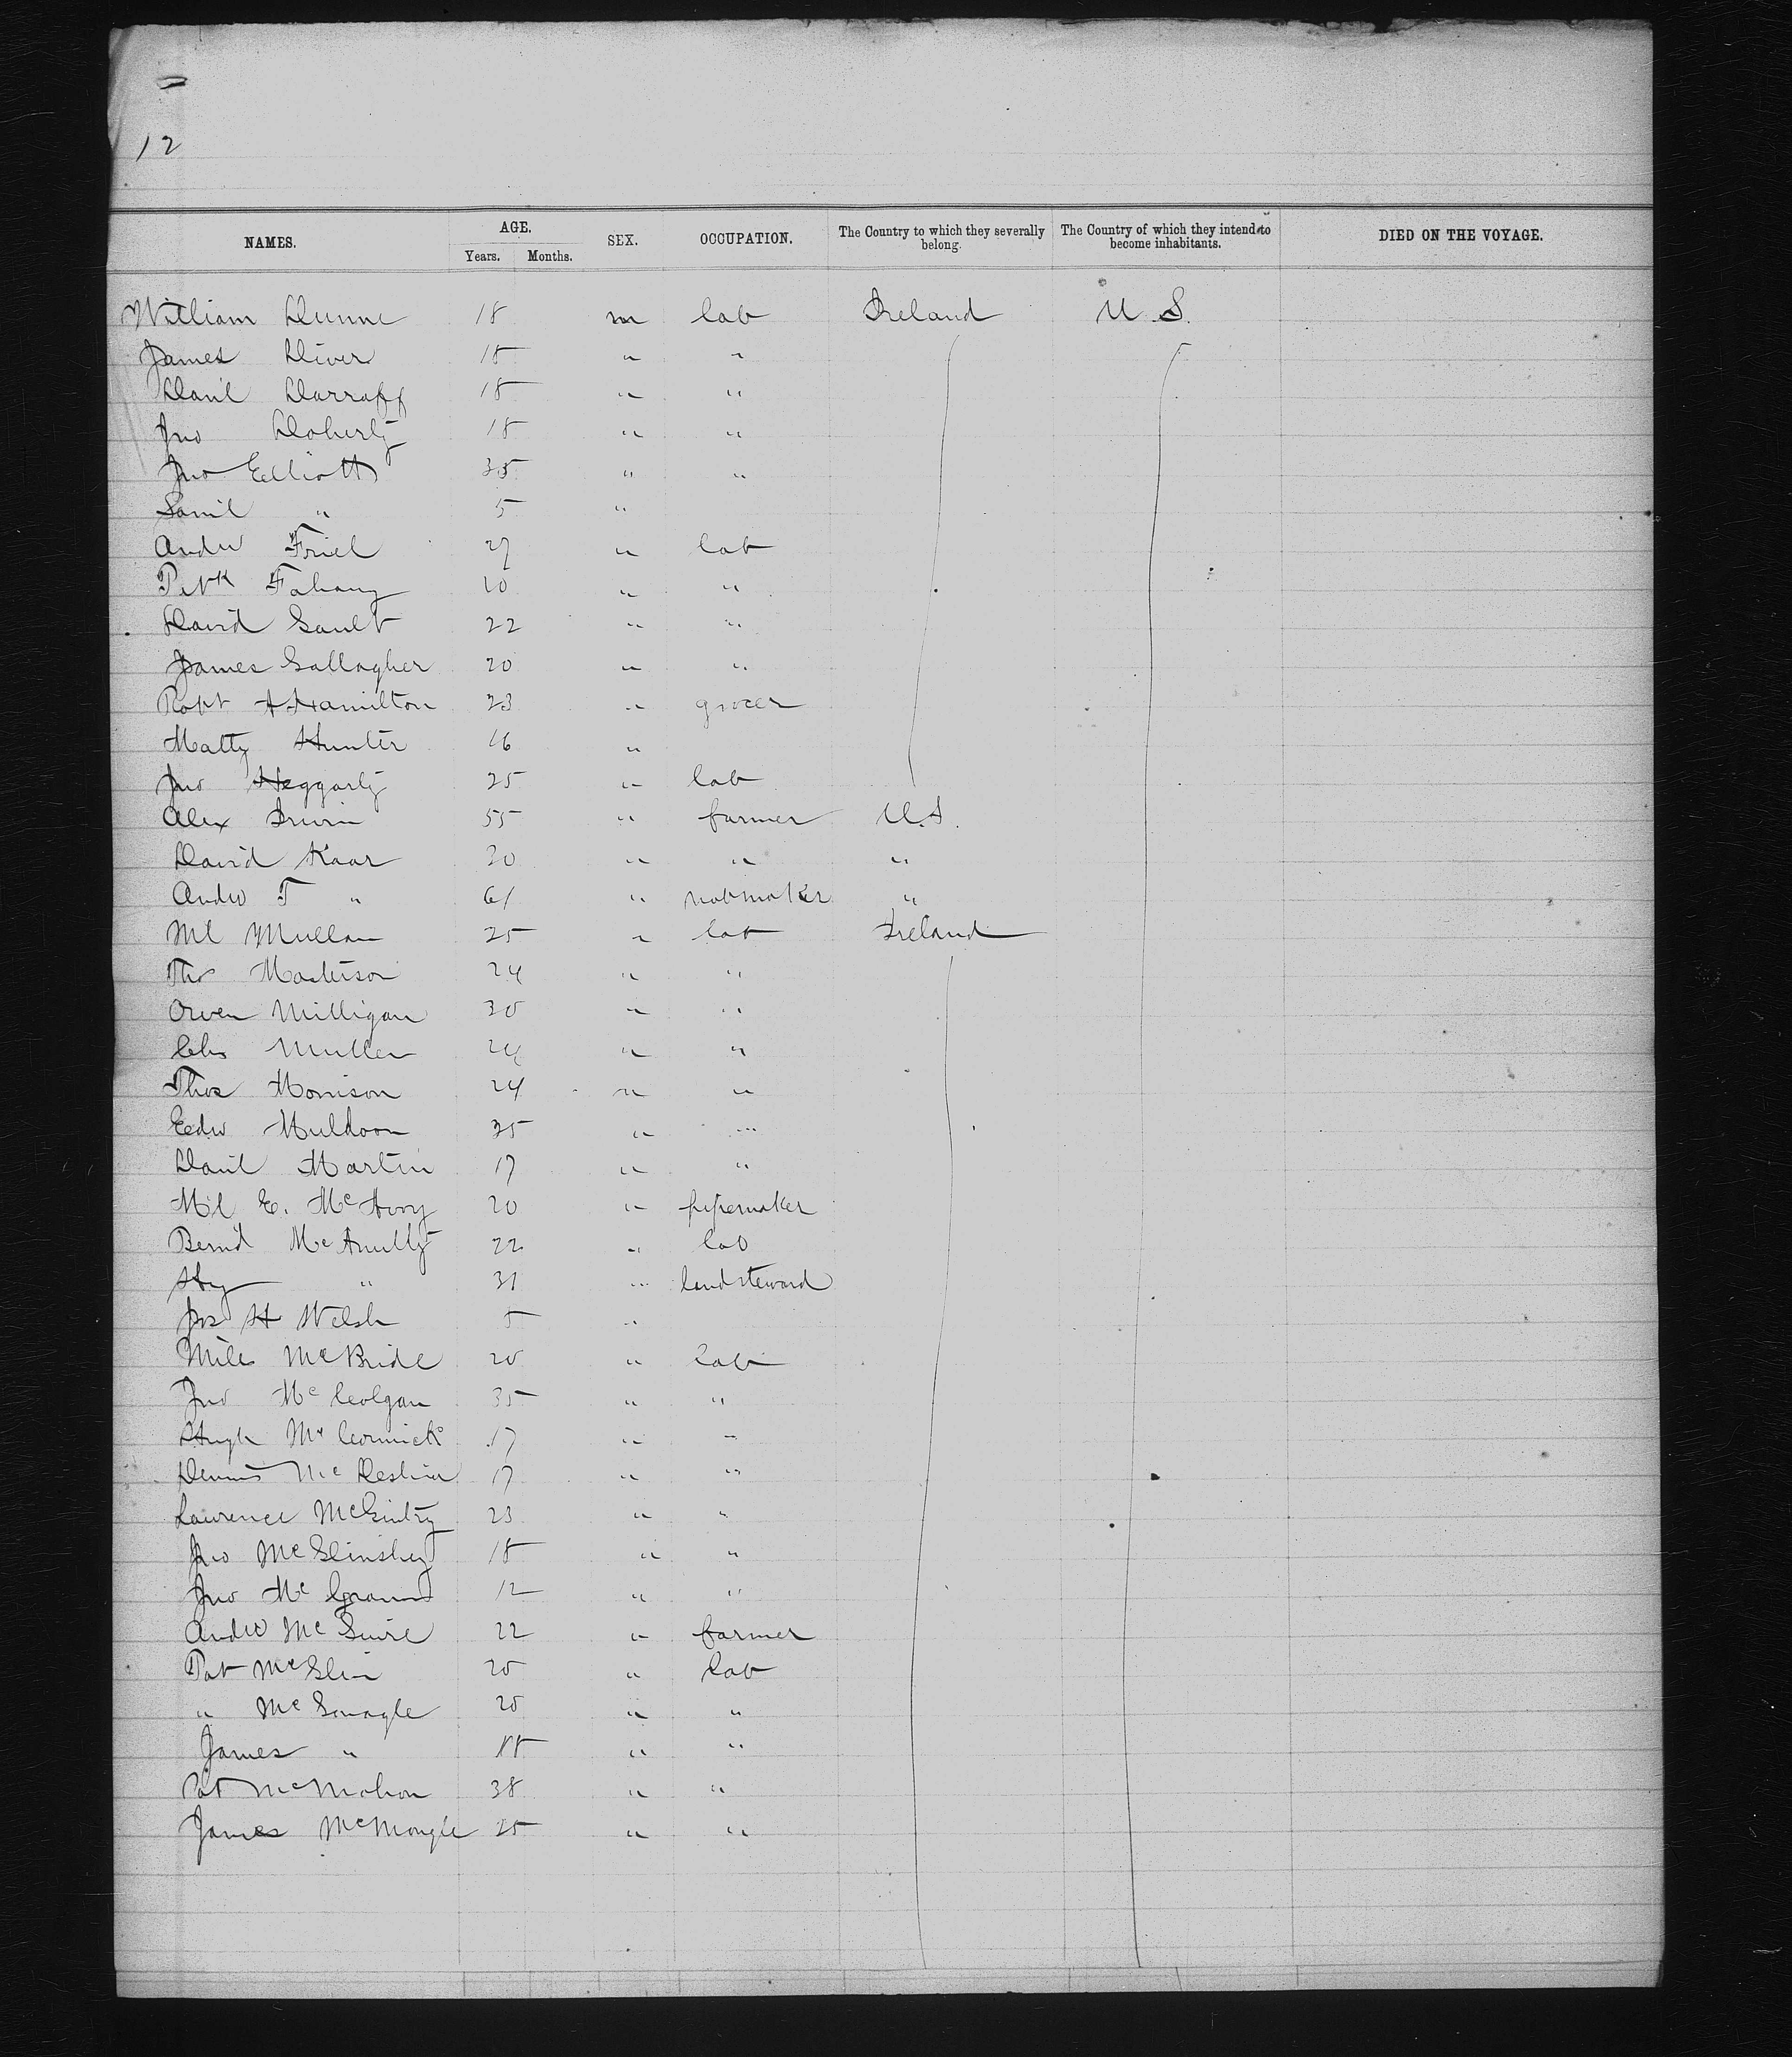 12
NAMES. AGE. Years. Months. SEX. OCCUPATION. The Country to which they severally belong. The Country of which they intend to become inhabitants. DIED ON THE VOYAGE.
William Dunne 18 m lab Ireland U.S.
James Diver 18 " "
Danl Darraff 18 " "
Jno Doherty 18 " "
Jno Elliott 35 " "
Saml " 5 "
Andw Friel 27 " lab
Patk Fahany 20 " "
David Gault 22 " "
James Gallagher 20 " "
Robt Hamilton 23 " grocer
Matty Hunter 16 "
Jno Heggarty 25 " lab
Alex Irwin 55 " farmer U.S.
David Kaar 20 " " "
Andw T " 61 " "
Ml Mullan 25 " lab Ireland
Tho Masterson 24 " "
Owen Milligan 30 " "
Chs Mullen 24 " "
Thos Morrison 24 " "
Edw Muldoon 35 " "
Danl Martin 17 " "
Ml E. McAvoy 20 " pipemaker
Bernd McAnulty 22 " lab
Hy " 31 " landsteward
Jos H Welsh 5 "
Miles McBride 20 " lab
Jno McColgan 35 " "
Hugh McCormick 17 " "
Dennis McDeshin 17 " "
Lawrence McGinty 23 " "
Jno McGlinshey 18 " "
Jno Mc 12 " "
Andw McGuire 22 " farmer
Pat McGlin 20 " lab
" McGonagle 20 " "
James " 18 " "
Pat McMahon 38 " "
James McMongle 25 " "